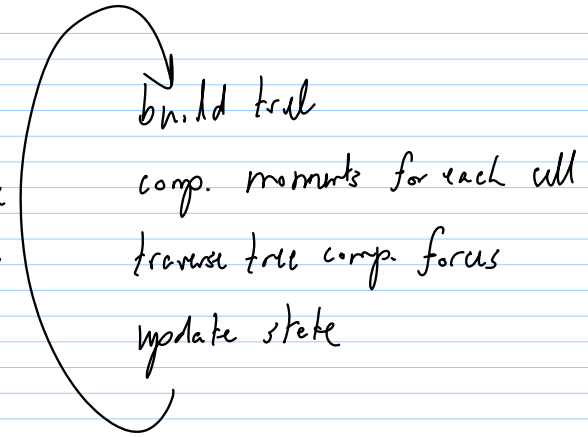 build tree
comp. moments for each cell
traverse tree comp. forces
update state